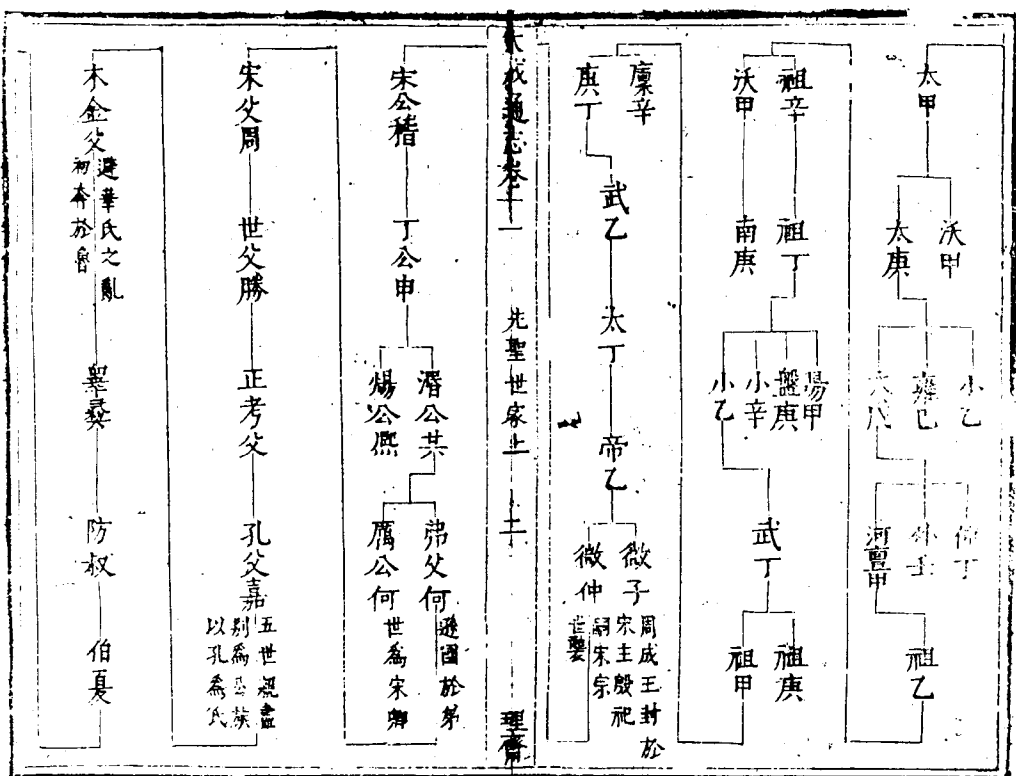 太甲
沃甲
太庚
小乙
雍己
太戊
仲丁
外壬
河亶甲
祖乙
祖辛
沃甲
祖丁
南庚
陽甲
盤庚
小辛
小乙
武丁
祖庚
祖甲
廩辛
庚丁
武乙
太丁
帝乙
微子
周成王封於
宋主殷祀
微仲
嗣宋宗
世襲
大成通志卷十一
先聖世家上
二
理齋
宋公稽
丁公申
湣公共
煬公熙
弗父何
遜國於弟
世為宋卿
厲公何
宋父周
世父勝
正考父
孔父嘉
五世親盡
別為公族
以孔為氏
木金父
避華氏之亂
初奔於魯
睪夷
防叔
伯夏